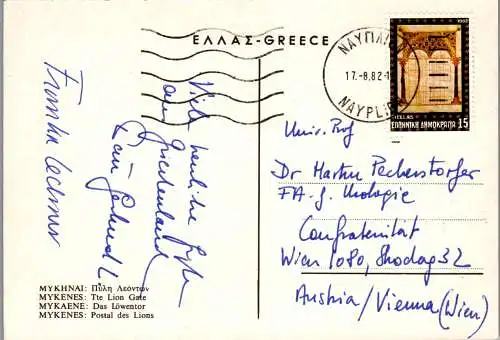 ΕΛΛΑΣ-GREECE
ΝΑΥΠΛΙΟΝ
17.-8.82-1
NAVPLION
HELLAS
ΕΛΛΗΝΙΚΗ ΔΗΜΟΚΡΑΤΙΑ 15
Viele herzliche Grüße
aus
Griechenland
Familie Lechner
Univ. Prof
Dr Martin Pecherstorfer
FA. f. Urologie
Confraternität
Wien 1080, Skodag 32
Austria/Vienna (Wien)
ΜΥΚΗΝΑΙ: Πύλη Λεόντων
MYKENES: Tte Lion Gate
MYKAENE: Das Löwentor
MYKENES: Postal des Lions